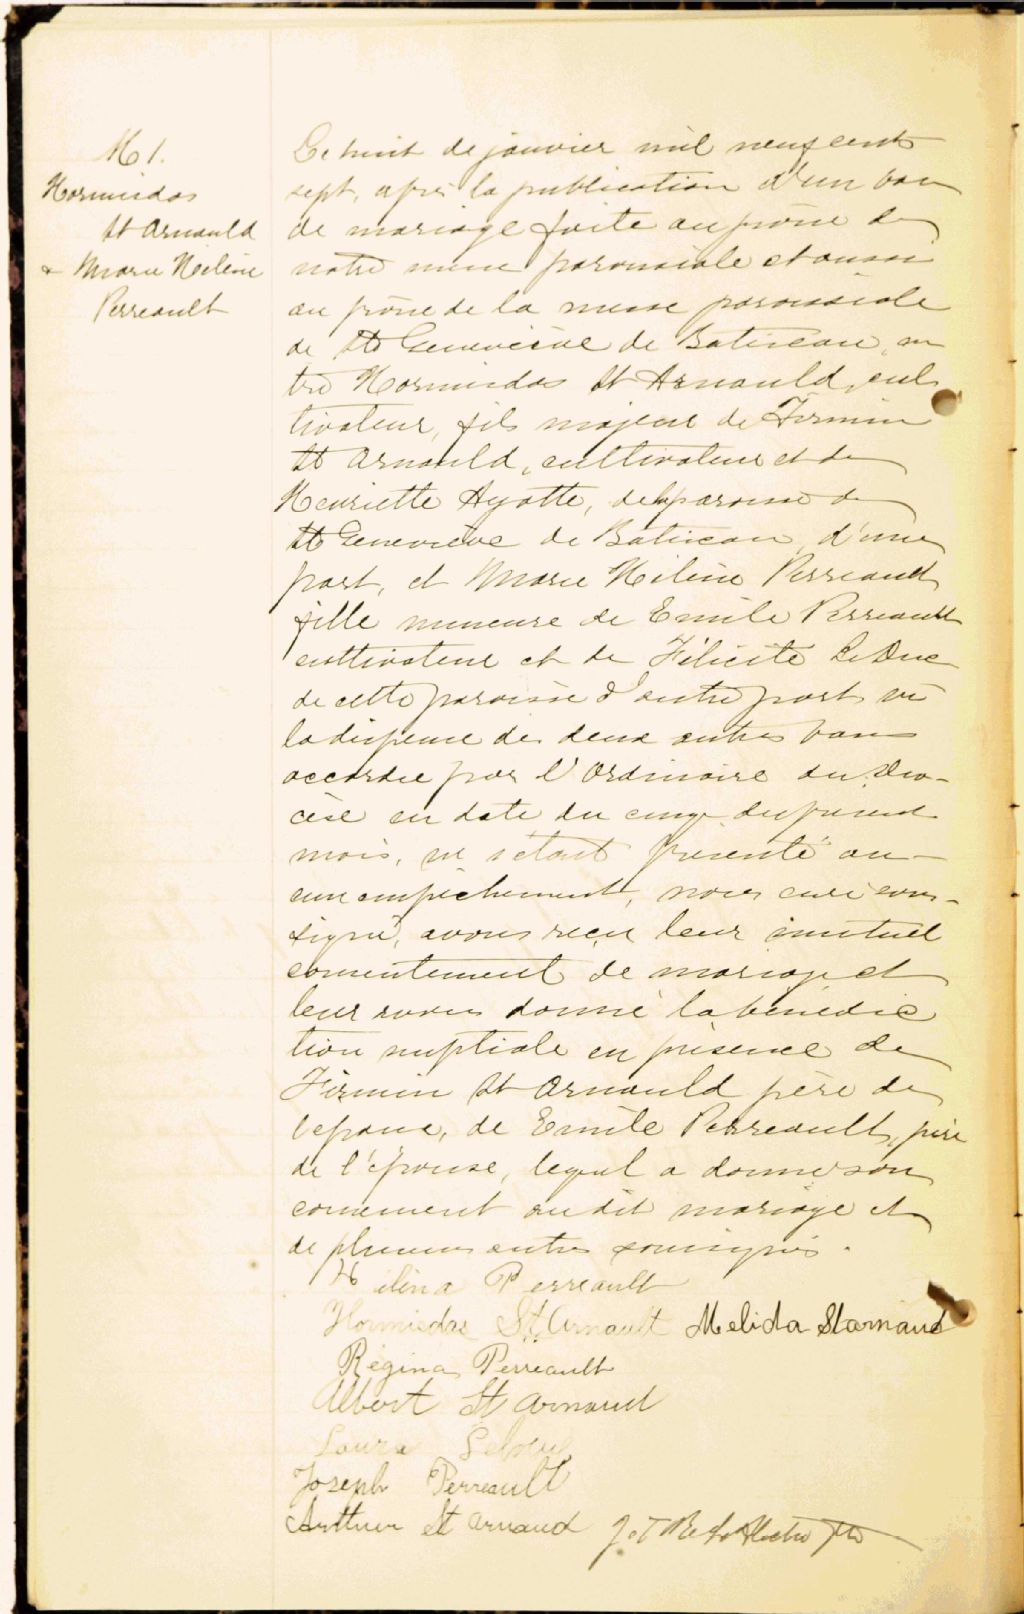 M 1.
Hormisdas
St Arnauld
& Marie Hélène
Perreault
Le huit de janvier mil neuf cent
sept, après la publication d'un ban
de mariage faite au prône de
notre messe paroissiale et aussi
au prône de la messe paroissiale
de Ste Geneviève de Batiscan, en
tre Hormisdas St Arnauld, cul
tivateur, fils majeur de Firmin
St Arnauld, cultivateur et de
Henriette Ayotte, de la paroisse de
Ste Geneviève de Batiscan d'une
part, et Marie Hélène Perreault
fille mineure de Emile Perreault
cultivateur et de Félicité LeDuc
de cette paroisse d'autre part vu
la dispense de deux autres bans
accordée par l'Ordinaire du Dio-
cèse en date du cinq du présent
mois, ne s'étant présenté au-
cun empêchement, nous curé sous-
signé, avons reçu leur mutuel
consentement de mariage et
leur avons donné la bénédic
tion nuptiale en présence de
Firmin St Arnauld père de
l'époux, de Emile Perreault, père
de l'épouse, lequel a donné son
consement au dit mariage et
de plusieurs autres soussignés.
Hélina Perreault
Hormisdas St. Arnault Melida Starnaud
Régina Perreault
Albert St Arnaud
Laura
Joseph Perreault
Arthur St Arnaud J. T.